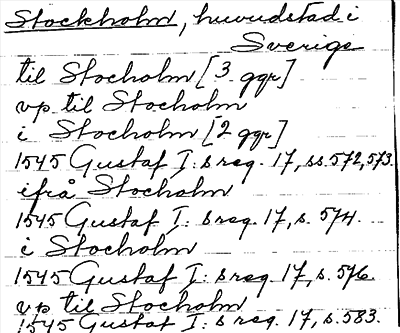 Stockholm, huvudstad i
Sverige
til Stocholm [3 ggr]
vp til Stocholm
i Stocholm [2 ggr]
1545 Gustaf I: s reg. 17, ss. 572, 573.
ifrå Stocholm
1545 Gustaf I: s reg. 17, s. 574.
i Stocholm
1545 Gustaf I: s reg. 17, s. 576.
vp til Stocholm
1545 Gustaf I: s reg. 17, s. 583.